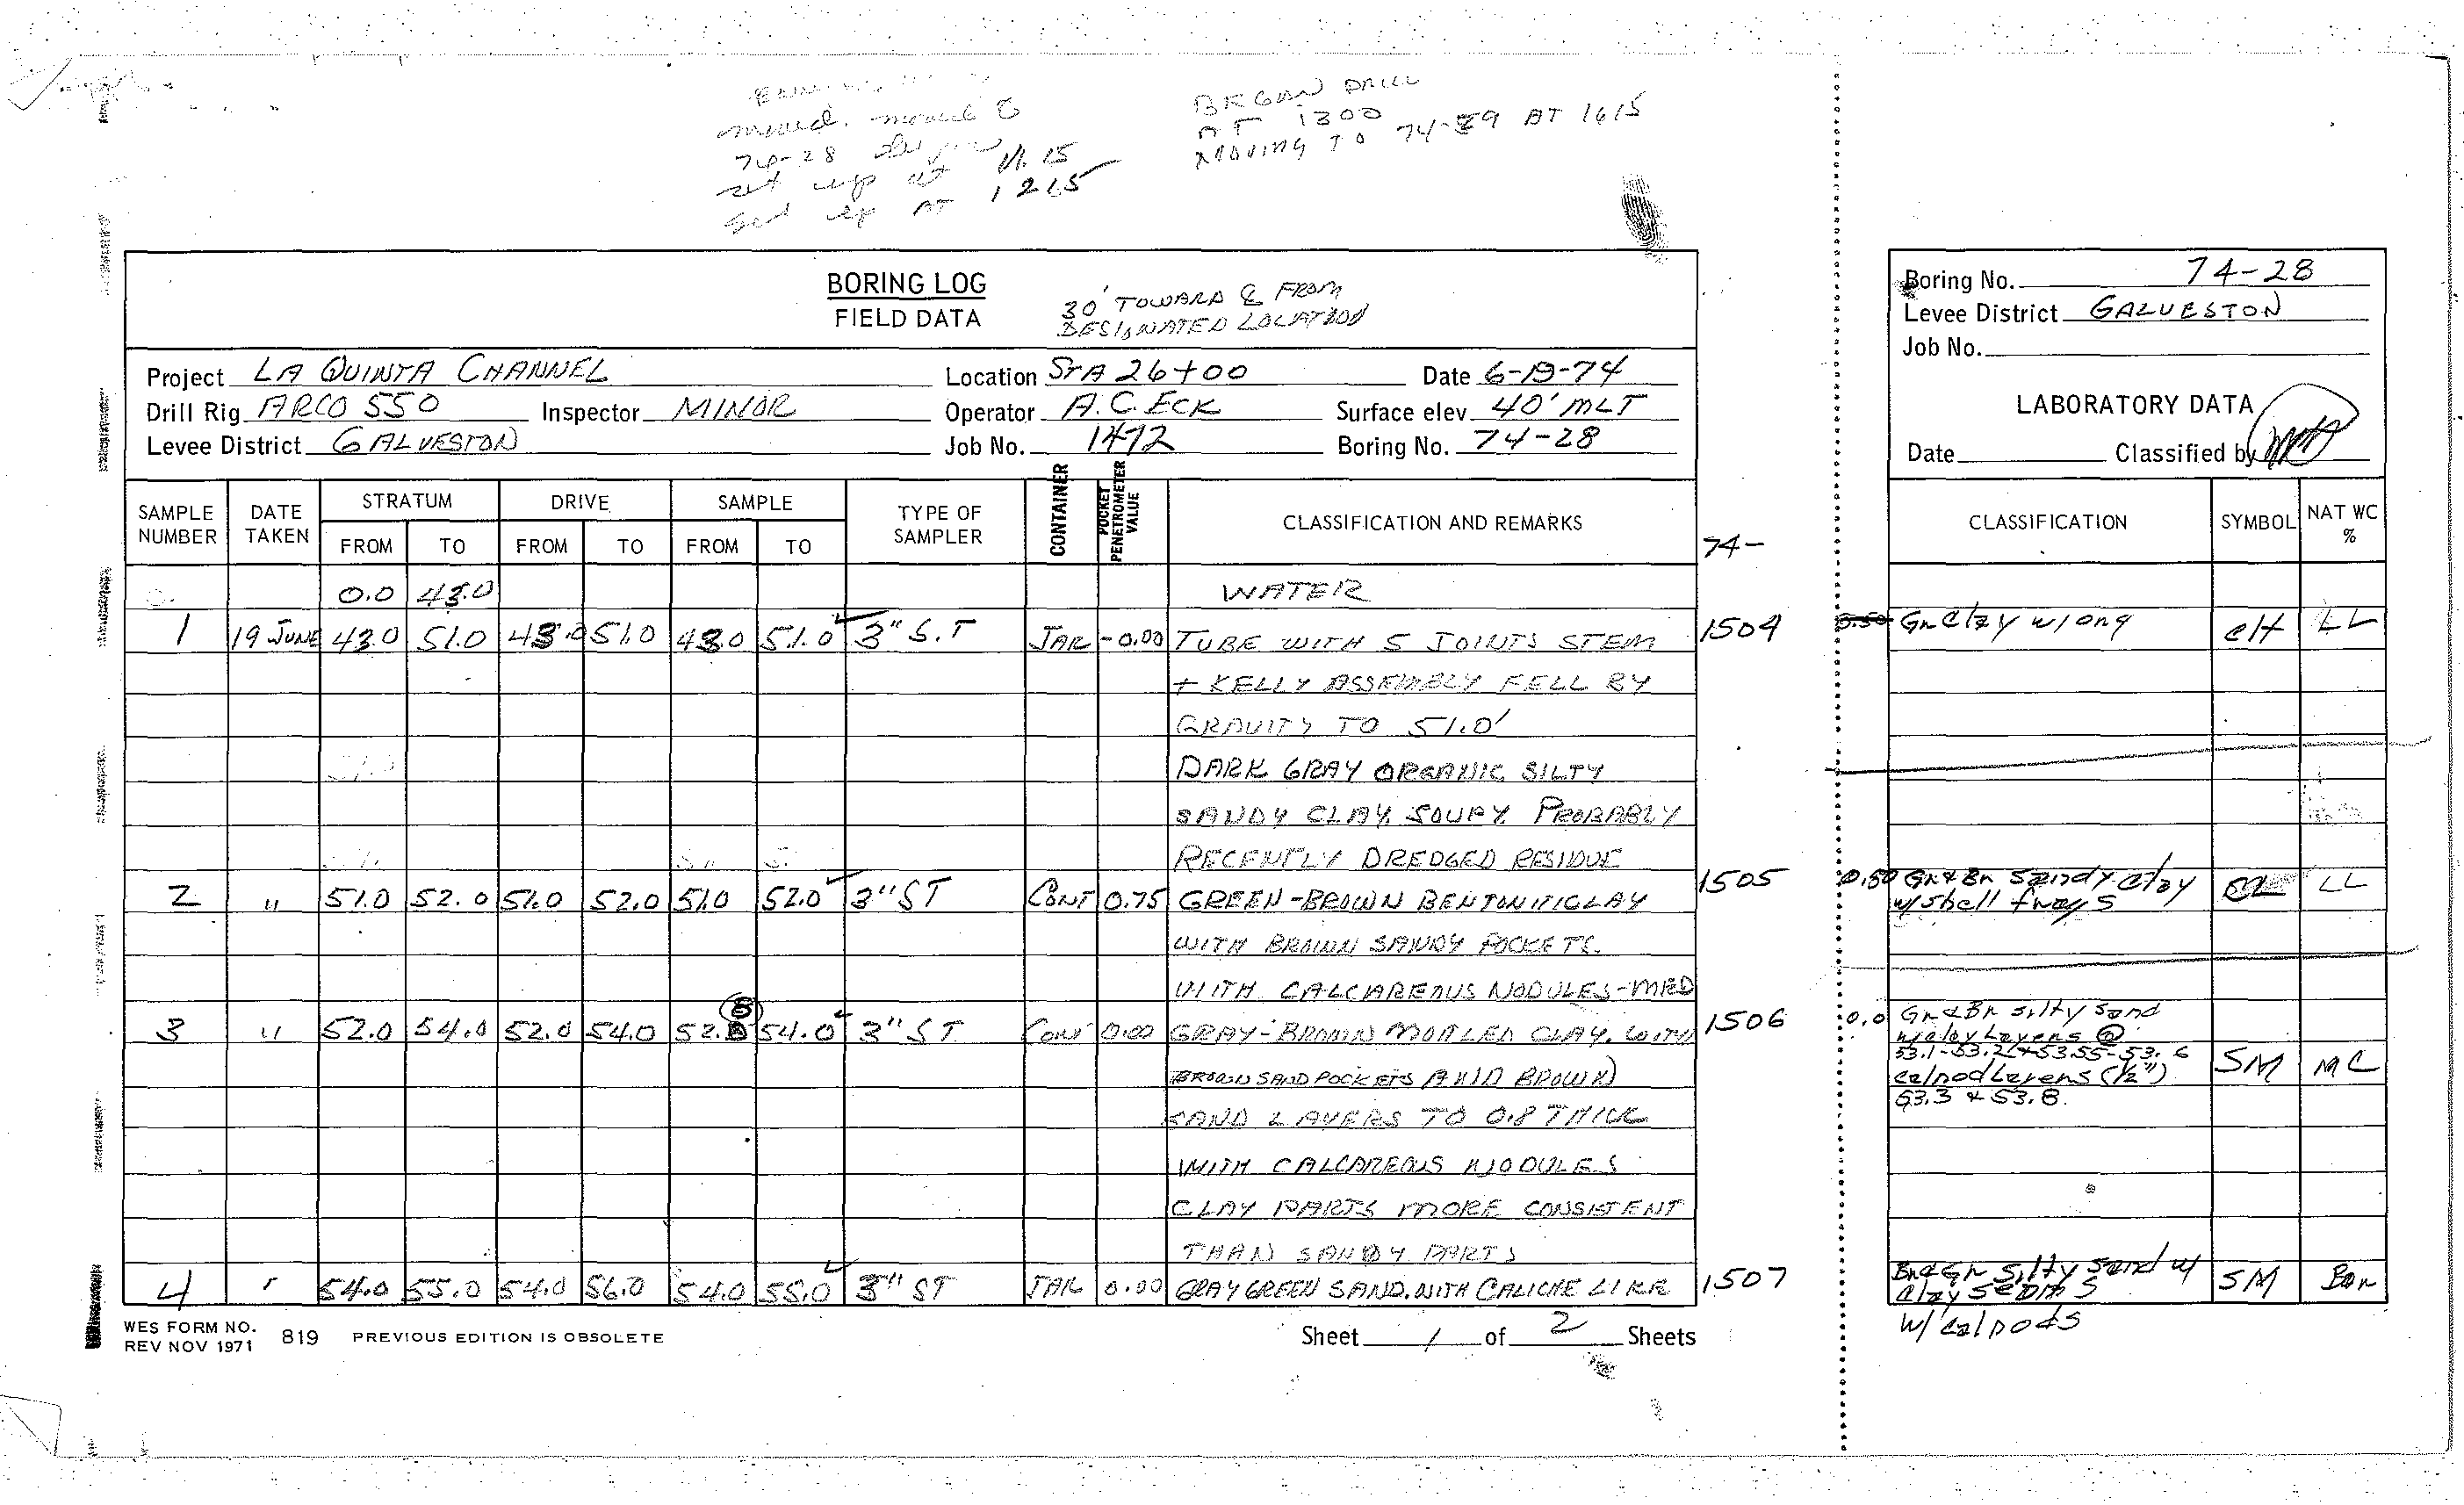 moved. moved to
74-28
set up at 11.15
set up AT 1215
BEGAN DRILL
AT 1300
MOVING TO 74-29 AT 1615
BORING LOG
FIELD DATA
30' TOWARD ℄ FROM
DESIGNATED LOCATION
Project LA QUINTA CHANNEL Location STA 26+00 Date 6-19-74
Drill Rig ARCO 550 Inspector MINOR Operator A.C. ECK Surface elev. 40' MLT
Levee District GALVESTON Job No. 1472 Boring No. 74-28
SAMPLE NUMBER DATE TAKEN STRATUM FROM TO DRIVE FROM TO SAMPLE FROM TO TYPE OF SAMPLER CONTAINER POCKET PENETROMETER VALUE CLASSIFICATION AND REMARKS
74-
0.0 43.0 WATER
1 19 JUNE 43.0 51.0 43.0 51.0 43.0 51.0 3" S.T JAR -0.00 TUBE WITH 5 JOINTS STEM 1504
+ KELLY ASSEMBLY FELL BY
GRAVITY TO 51.0'
DARK GRAY ORGANIC SILTY
SANDY CLAY. SOUPY. PROBABLY
RECENTLY DREDGED RESIDUE
2 " 51.0 52.0 51.0 52.0 51.0 52.0 3" ST CONT 0.75 GREEN-BROWN BENTONITICLAY 1505
WITH BROWN SANDY POCKETS.
WITH CALCAREOUS NODULES-MED
3 " 52.0 54.0 52.0 54.0 52.8 54.0 3" ST CONT 0.00 GRAY-BROWN MOTLED CLAY. WITH 1506
BROWN SAND POCKETS AND BROWN
SAND LAYERS TO 0.8 THICK
WITH CALCAREOUS NODULES
CLAY PARTS MORE CONSISTENT
THAN SANDY PARTS
4 " 54.0 55.0 54.0 56.0 54.0 55.0 3" ST JAR 0.00 GRAY GREEN SAND. WITH CALICHE LIKE 1507
WES FORM NO. 819 PREVIOUS EDITION IS OBSOLETE
REV NOV 1971
Sheet 1 of 2 Sheets
Boring No. 74-28
Levee District GALVESTON
Job No.
LABORATORY DATA
Date Classified by
CLASSIFICATION SYMBOL NAT WC %
0.50 Gn Clay w/ ong CH LL
0.50 Gn & Bn Sandy Clay CL LL
w/ shell frags
0.0 Gn & Bn silty sand
w/ clay Layers @
53.1-53.2 & 53.55-53.6 SM MC
calnod Layers (½")
53.3 & 53.8.
Bn & Gn Silty Sand w/ SM Bon
clay seams
w/ calnods